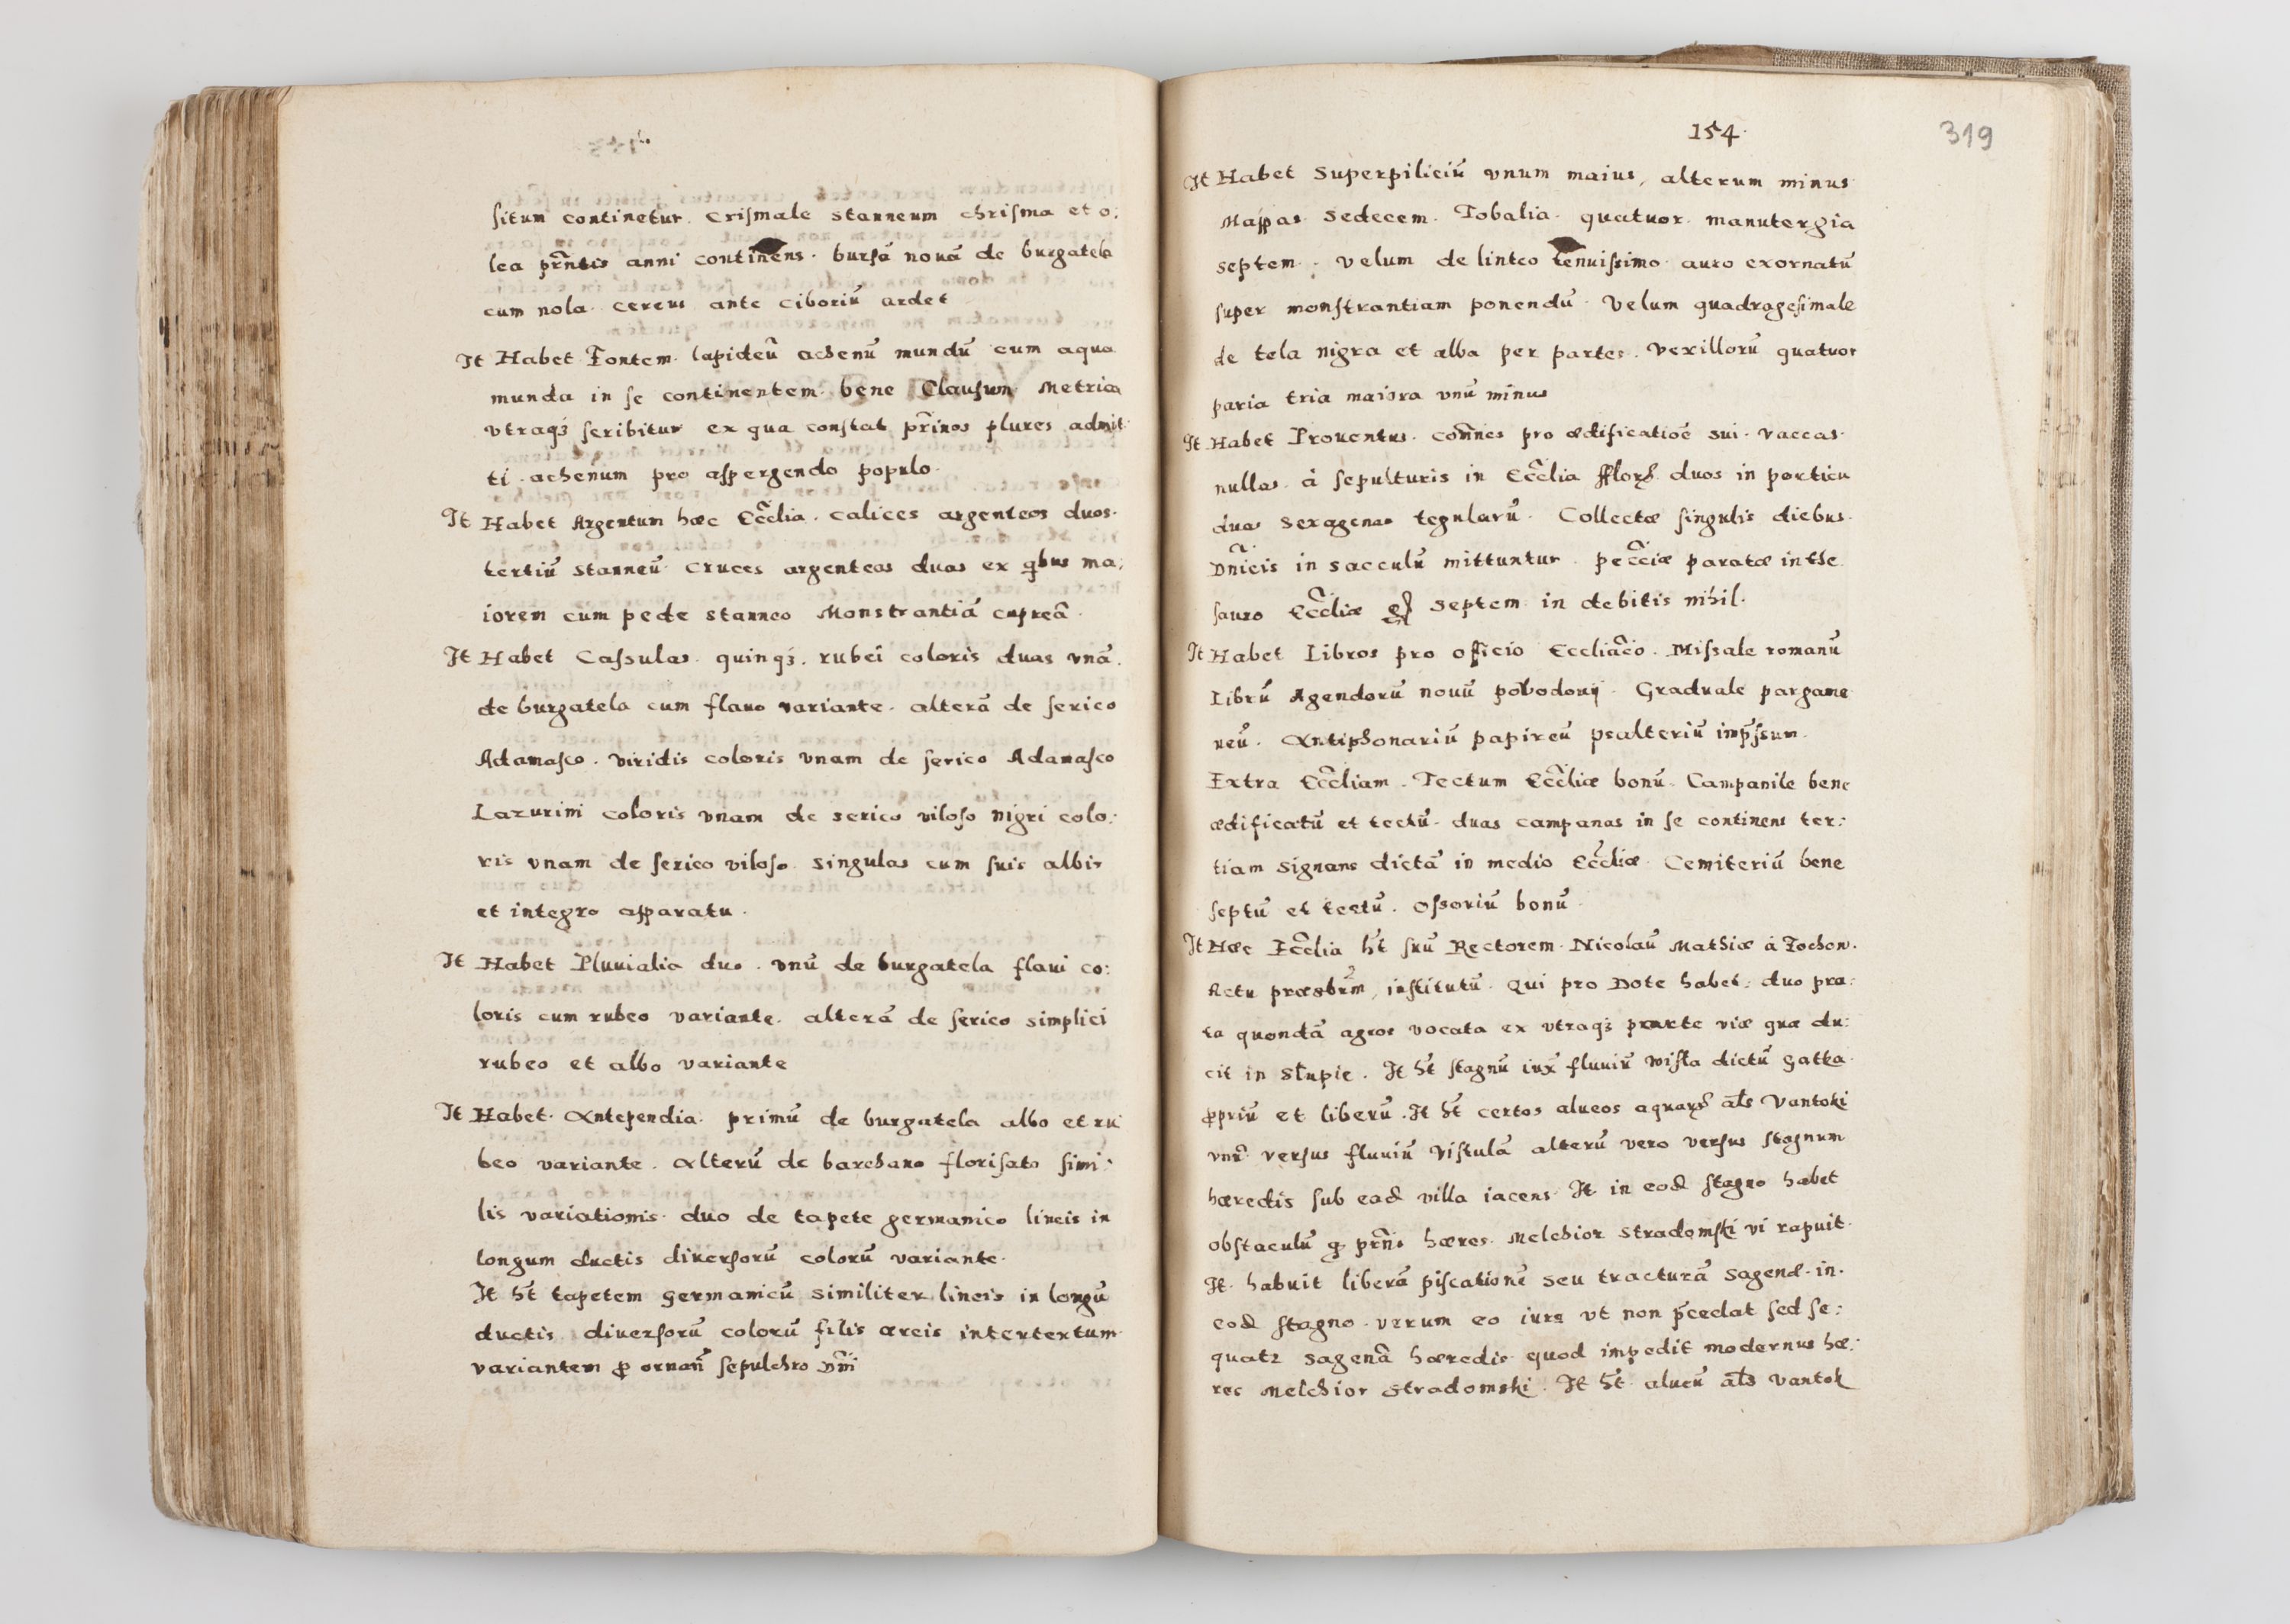 situm continetur. Crismale stanneum chrisma et o:
lea pr̃ntis anni continens. bursā nouā de burgatela
cum nola. cereus ante ciboriū ardet
It Habet Fontem lapideū achenū mundū cum aqua
munda in se continentem bene Clausum Metrica
vtraqȝ scribitur ex qua constat pr̃inos plures admit
ti. achenum pro aspergendo populo.
It Habet Argentum hæc Eccl̃ia. calices argenteos duos.
tertiū stanneū cruces argenteas duas ex qbus ma:
iorem cum pede stanneo Monstrantiā cupreā.
It Habet Cassulas quinqȝ. rubei coloris duas vnā.
de burgatela cum flauo variante. alterā de serico
Adamasco. viridis coloris vnam de serico Adamasco
Lazurini coloris vnam de serico viloso nigri colo:
ris vnam de serico viloso singulas cum suis albis
et integro apparatu.
It Habet Pluuialia duo. vnū de burgatela flaui co:
loris cum rubeo variante. alterā de serico simplici
rubeo et albo variante
It Habet. Antependia. primū de burgatela albo et ru
beo variante. Alterū de barchano florisato simi:
lis variationis duo de tapete germanico lineis in
longum ductis diuersorū colorū variante.
It ht̃ tapetem germanicū similiter lineis in longū
ductis diuersorū colorū filis æreis intertextum
variantem ꝓ ornañ sepulchro Dñi
154.
319
It Habet Superpiliciū vnum maius, alterum minus
Mappas sedecem. Tobalia quatuor. manutergia
septem. velum de linteo tenuissimo auro exornatū
super monstrantiam ponendū. Velum quadragesimale
de tela nigra et alba per partes. Vexillorū quatuor
paria tria maiora vnū minus
It Habet Prouentus. com̃nes pro ædificatioē sui. vaccas.
nullas. à sepulturis in Eccl̃ia fflorꝭ duos in porticu
duas sexagenas tegularū. Collectæ singulis diebus.
Dñicis in sacculū mittuntur. pecc̃iæ paratæ in the
sauro Eccl̃iæ septem in debitis nihil.
It Habet Libros pro officio Eccliãco. Missale romanū
Librū Agendorū nouū powodowij. Graduale pargame
neū. Antiphonariū papireū psalteriū imp̃ssum.
Extra Eccl̃iam. Tectum Eccl̃iæ bonū. Campanile bene
ædificatū et tectū. duas campanas in se continens ter:
tiam signans dictā in medio Eccl̃iæ. Cemiteriū bene
septū et tectū. Ossoriū bonū.
It Hæc Eccl̃ia ht̃ suū Rectorem Nicolaū Mathiæ à Zochow.
Actu præsbrm̃, institutū. Qui pro Dote habet. duo pra:
ta quondā agros vocata ex vtraqȝ parte viæ quæ du:
cit in Slupie. It ht̃ stagnū iux̃ fluuiū wisla dictū gatka.
ꝓpriū et liberū. It ht̃ certos alueos aquarꝭ al̃s Vantoki
vnū versus fluuiū Vistulā alterū vero versus stagnum
hæredis sub eađ villa iacens. It in eođ stagno habet
obstaculū q̨ pr̃ns hæres Melchior Stradomski vi rapuit.
It habuit liberā piscationē seu tracturā sagenæ. in.
eođ stagno. verum eo iure vt non p̃cedat sed se:
quatr sagenā hæredis quod impedit modernus hæ:
res Melchior Stradomski. It ht̃ alueū al̃s Vantok